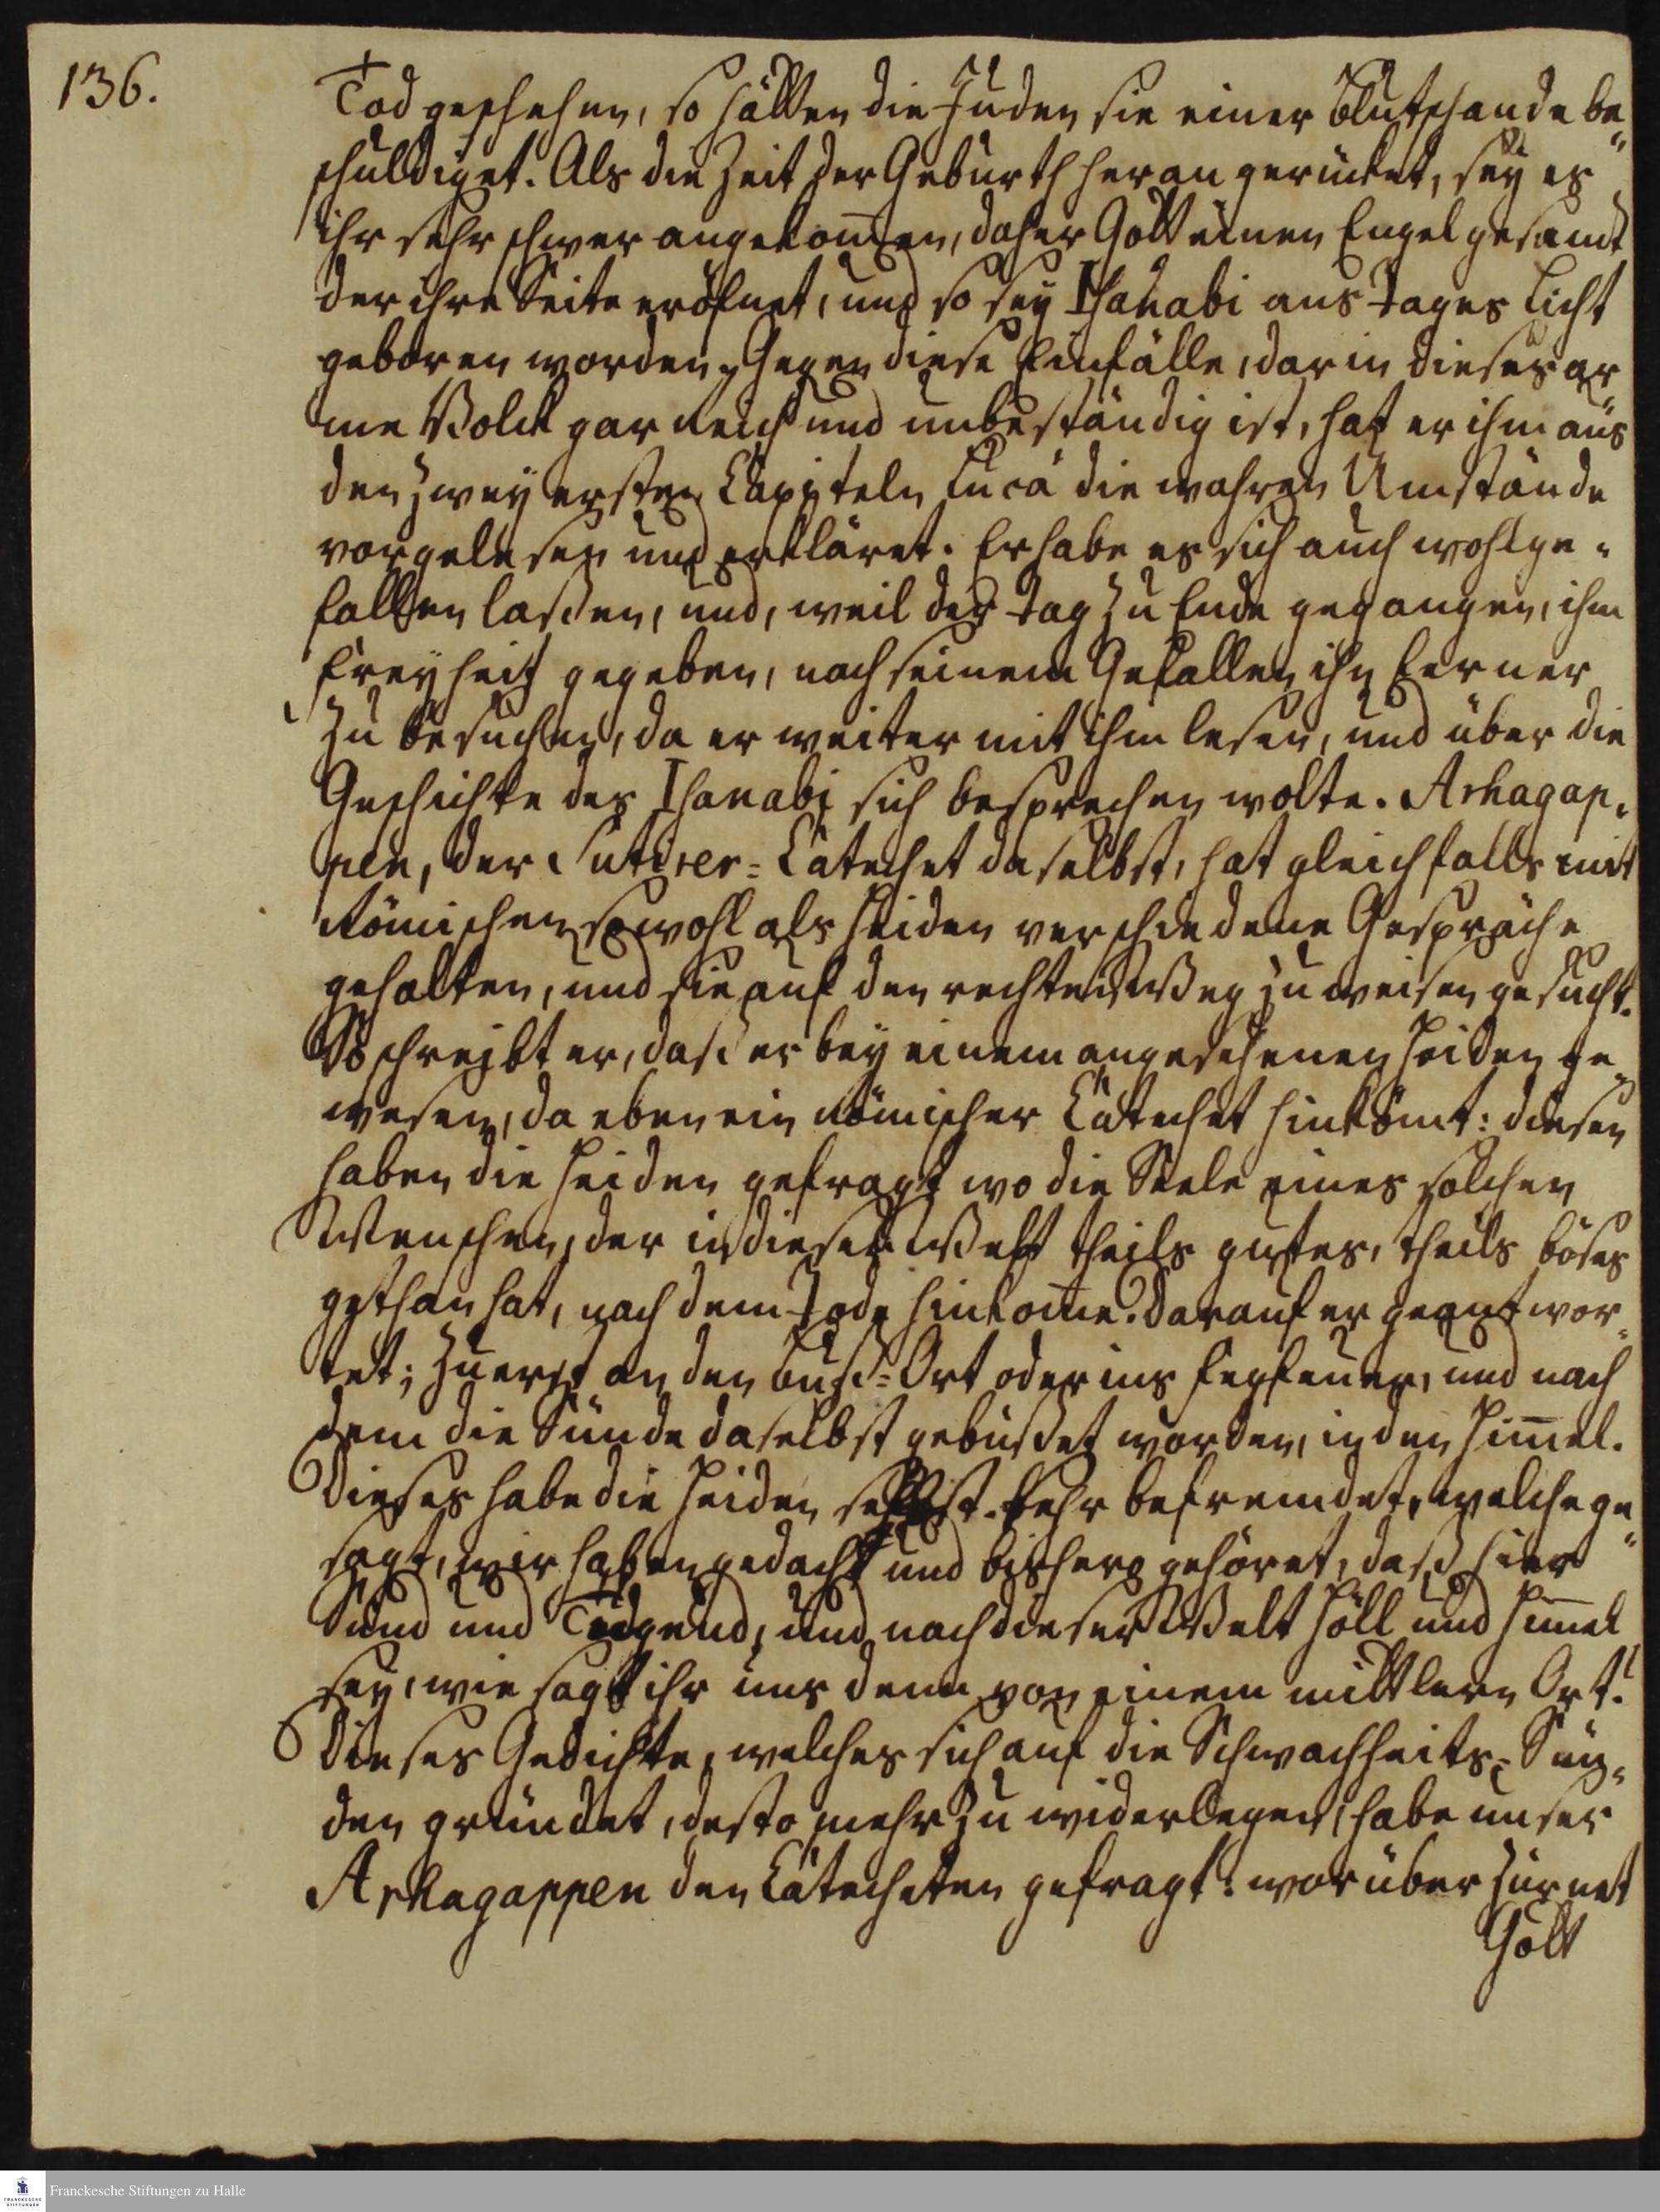 136.
Tod geschehen, so hätten die Juden sie einer Blutschande be-
schuldiget. Als die Zeit der Geburth heran gerücket, sey es
ihr sehr schwer angekom̅en, daher Gott einen Engel gesandt
der ihre Seite eröfnet, und so sey Ishanabi ans Tages Licht
geboren worden. Gegen diese Einfälle, darin dieses ar-
me Volck gar reich und unbeständig ist, hat er ihm aus
den zwey ersten Capiteln Lucä die wahren Umstände
vorgelesen und erkläret. Er habe es sich auch wohl ge-
fallen laßen, und, weil der Tag zu Ende gegangen, ihm
Freyheit gegeben, nach seinem Gefallen ihn ferner
zu besuchen, da er weiter mit ihm lesen, und über die
Geschichte des Ishanabi sich besprechen wolte. Arhagap-
pen, der Sutirer-Catechet daselbst, hat gleichfalls mit
Römischen sowohl als Heiden verschiedene Gespräche
gehalten, und sie auf den rechten Weg zu weisen gesucht.
So schreibt er, daß er bey einem angesehenen Heiden ge-
wesen, da eben ein Römischer Catechet hinkömt: diesen
haben die Heiden gefragt wo die Seele eines solchen
Menschen, der in dieser Welt theils gutes, theils böses
gethan hat, nach dem Tode hinkom̅e? Darauf er geantwor-
tet; zuerst an den Buß-Ort oder ins Fegfeuer, und nach
dem die Sünde daselbst gebüßet worden, in den Him̅el.
Dieses habe die Heiden selbst sehr befremdet, welche ge-
sagt, wir haben gedacht und bishero gehöret, daß hier
Sünd und Tugend, und nach dieser Welt Höll und Him̅el
sey, wie sagt ihr uns denn von einem mittlern Ort?
Dieses Gedichte, welches sich auf die Schwachheits-Sün-
den gründet, desto mehr zu widerlegen, habe unser
Arhagappen den Catecheten gefragt: worüber zürnet
Gott
Franckesche Stiftungen zu Halle